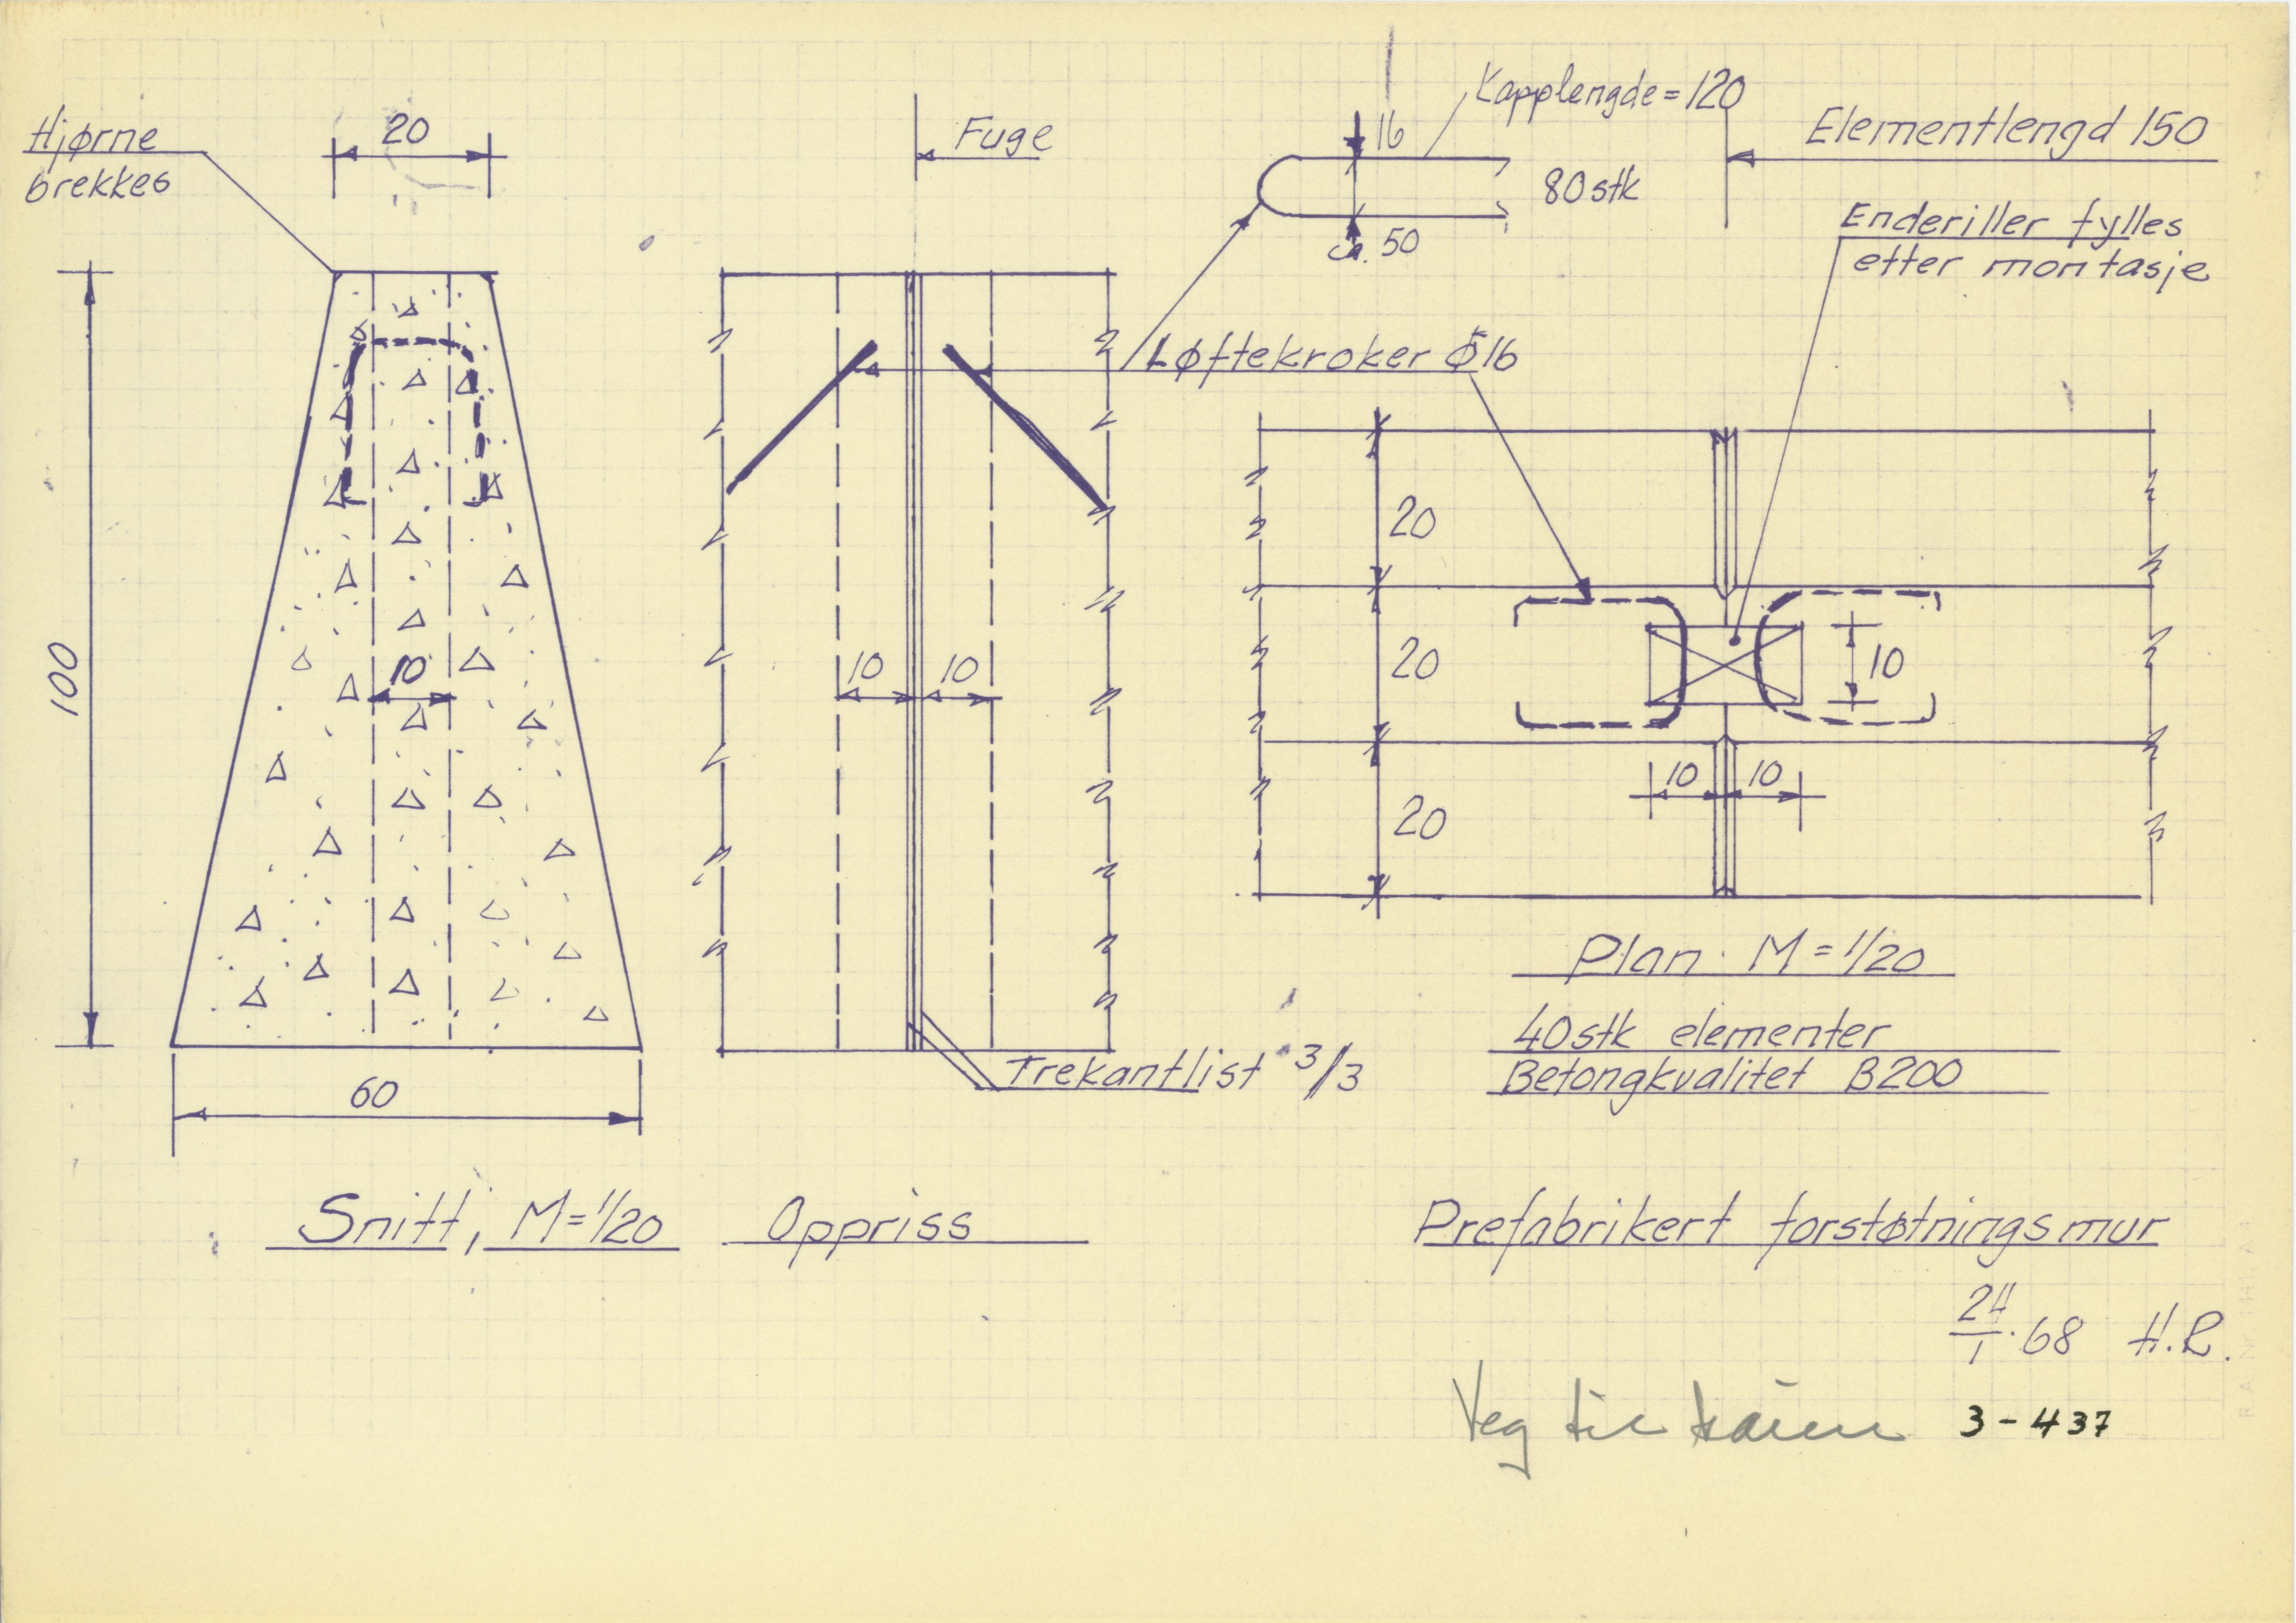 Hjørne
brekkes
20
Fuge
Kapplengde = 120
16
80 stk
ca. 50
Elementlengd 150
Enderiller fylles
etter montasje
Løftekroker Ø16
100
10
10
10
20
20
20
10
10
10
60
Trekantlist 3/3
Plan. M = 1/20
40 stk elementer
Betongkvalitet B200
Snitt, M = 1/20
Oppriss
Prefabrikert forstøtningsmur
24/1.68 H.R.
Veg til
3-437